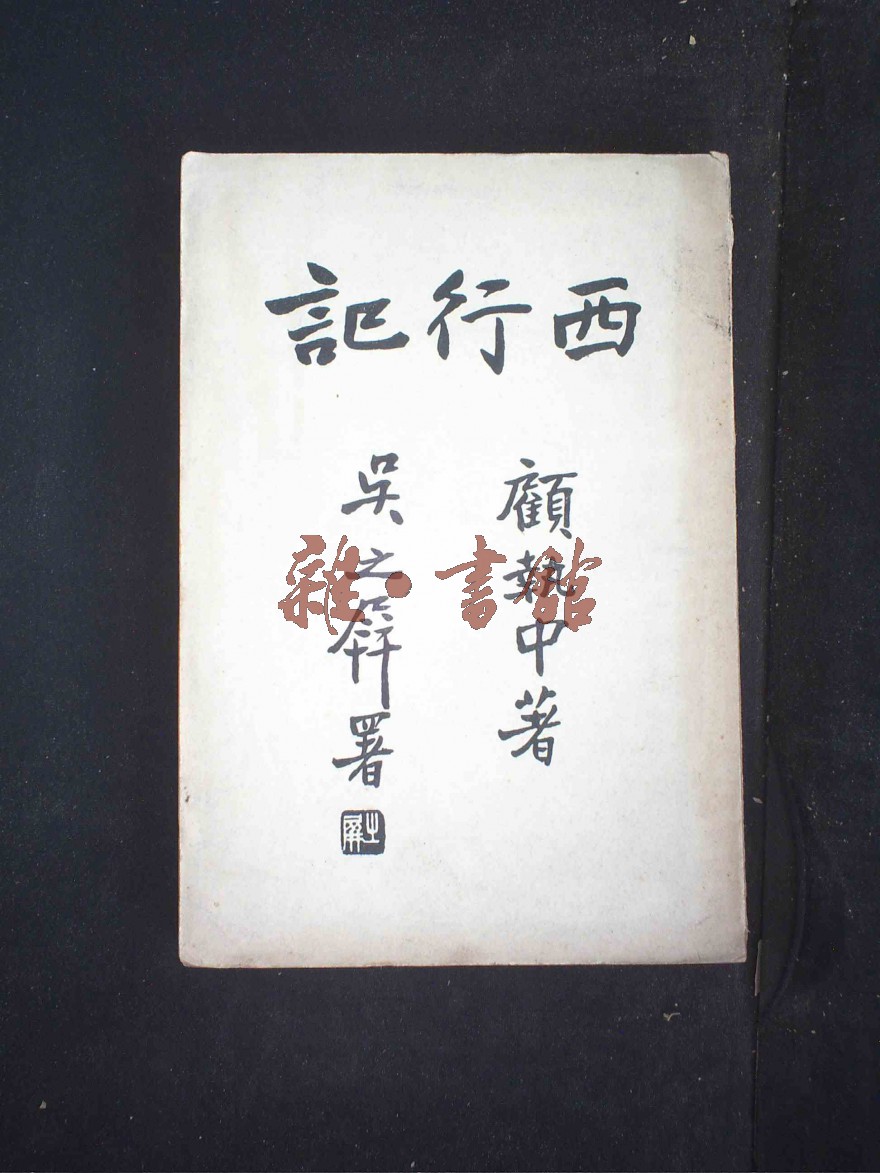 西行記
顧執中著
吳之屏署
之屏
雜·書館